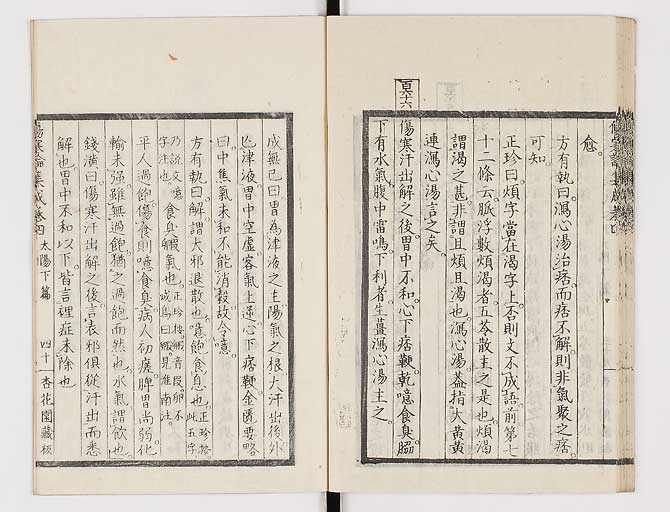 愈。
方有執曰。瀉心湯治痞。而痞不解則非氣聚之痞。
可知。
正珍曰。煩字當在渴字上。否則文不成語。前第七
十二條云。脈浮數煩渴者。五苓散主之是也。煩渴
謂渴之甚。非謂且煩且渴也。瀉心湯。蓋指大黃黃
連瀉心湯言之矣。
傷寒汗出解之後。胃中不和。心下痞鞕。乾噫食臭。脇
下有水氣。腹中雷鳴。下利者。生薑瀉心湯主之。
成無己曰。胃為津液之主。陽氣之根。大汗出後。外
亡津液。胃中空虛。客氣上逆。心下痞鞕。金匱要略
曰。中焦氣未和。不能消穀。故令噫。
方有執曰。解謂大邪退散也。噫飽食息也。正珍按此五字
乃說文噫字注也。食臭㗘氣也。正珍按
平人過飽傷食則噫食臭。病人初瘥。脾胃尚弱。化
輸未強。雖無過飽。猶之過飽而然也。水氣謂飲也。
錢潢曰。傷寒汗出解之後。言表邪俱從汗出而悉
解也。胃中不和以下。皆言裡症未除也
傷寒論集成卷四 太陽下篇 四十 杏花園藏板